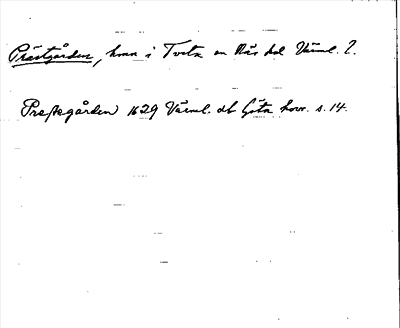 Prästgården, hmn i Tveta sn Näs hd Värml. l.
Prestegården 1629 Värml. db Göta hovr. s. 14.